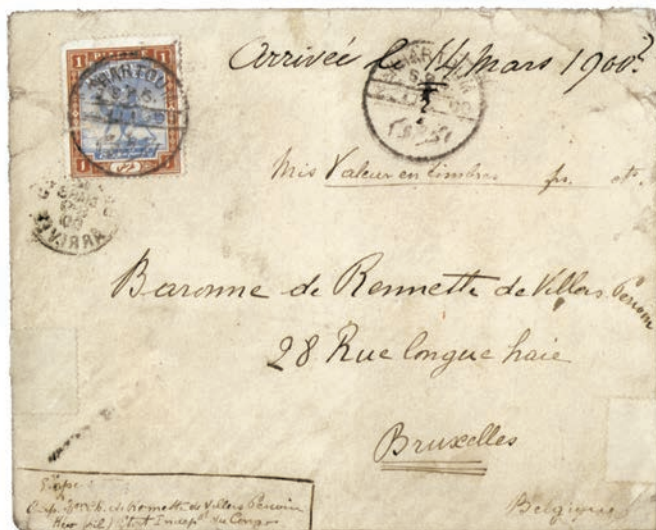 Arrivée le 14 Mars 1900
1 1
KHARTOUM
KHARTOUM
1 1
Mis Valeur en timbres fr. ct.
ARRIVA
Baronne de Rennette de Villers Perwin
28 Rue longue haie
Bruxelles
Belgique
Cap. de Rennette de Villers Perwin
Etat Indepᵗ du Congo